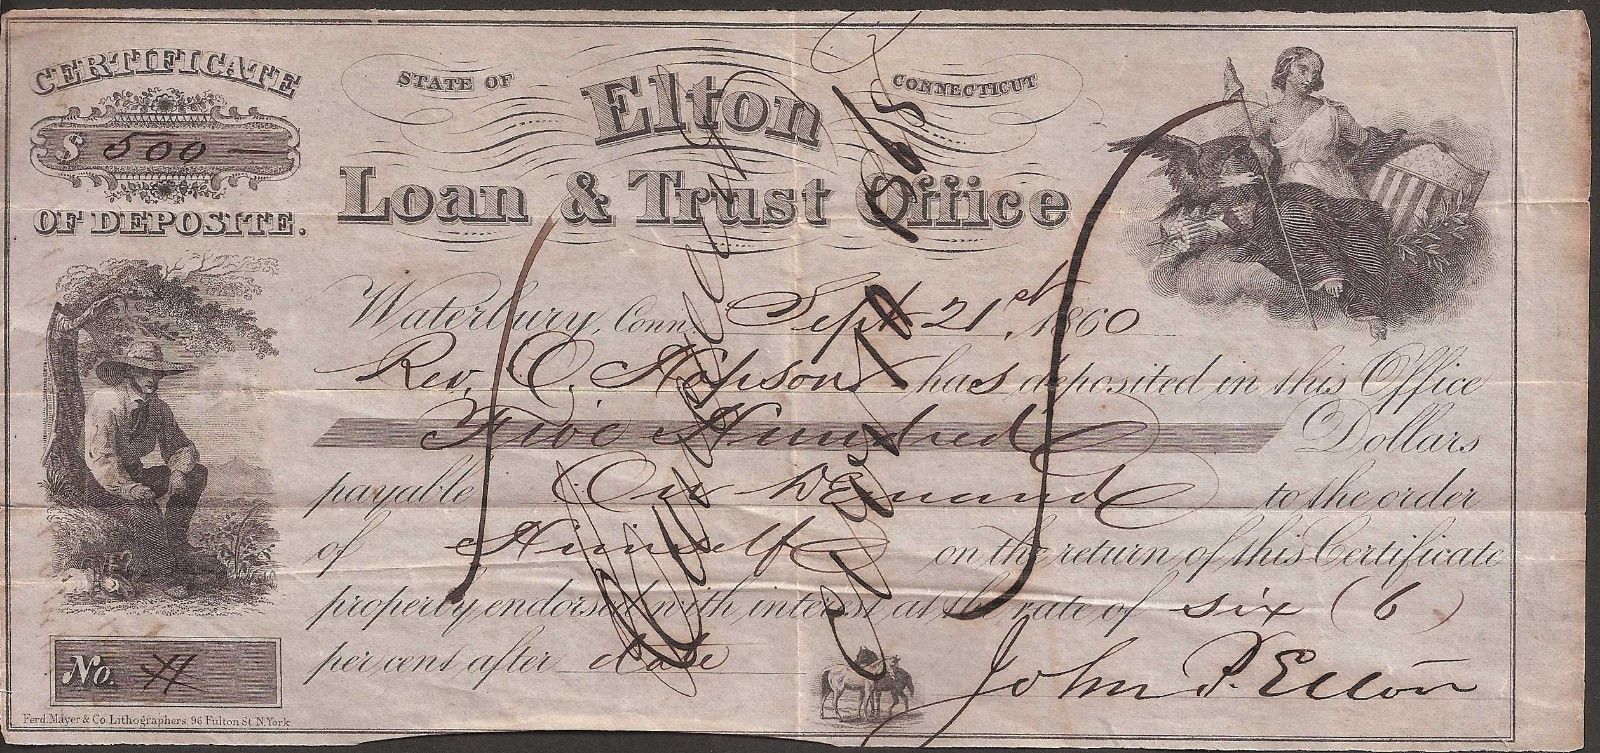 CERTIFICATE
$ 500 —
OF DEPOSITE.
STATE OF CONNECTICUT
Elton
Loan & Trust Office
Waterbury, Conn. Sept. 21st, 1860
Rev. C. has deposited in this Office
Five Hundred Dollars
payable On Demand to the order
of Himself on the return of this Certificate
properly endorsed with interest at the rate of six (6)
per cent after date
John P. Elton
No.
Ferd. Mayer & Co. Lithographers, 96 Fulton St. N. York